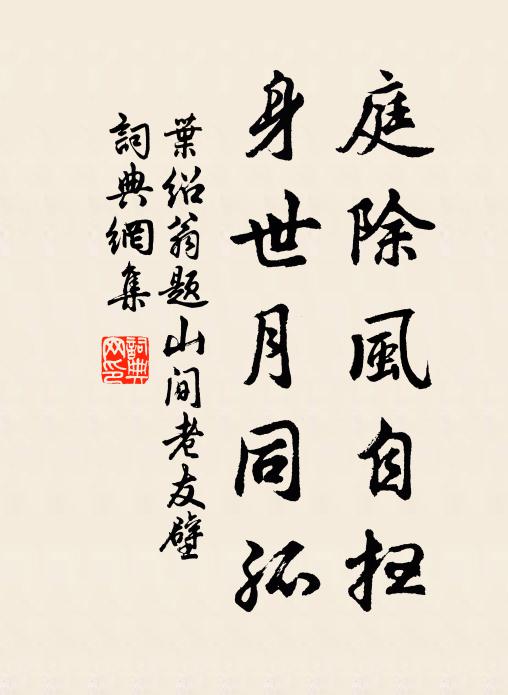 庭除風自扫
身世月同孤
葉紹翁題山間老友壁
詞典網集
詞典网印